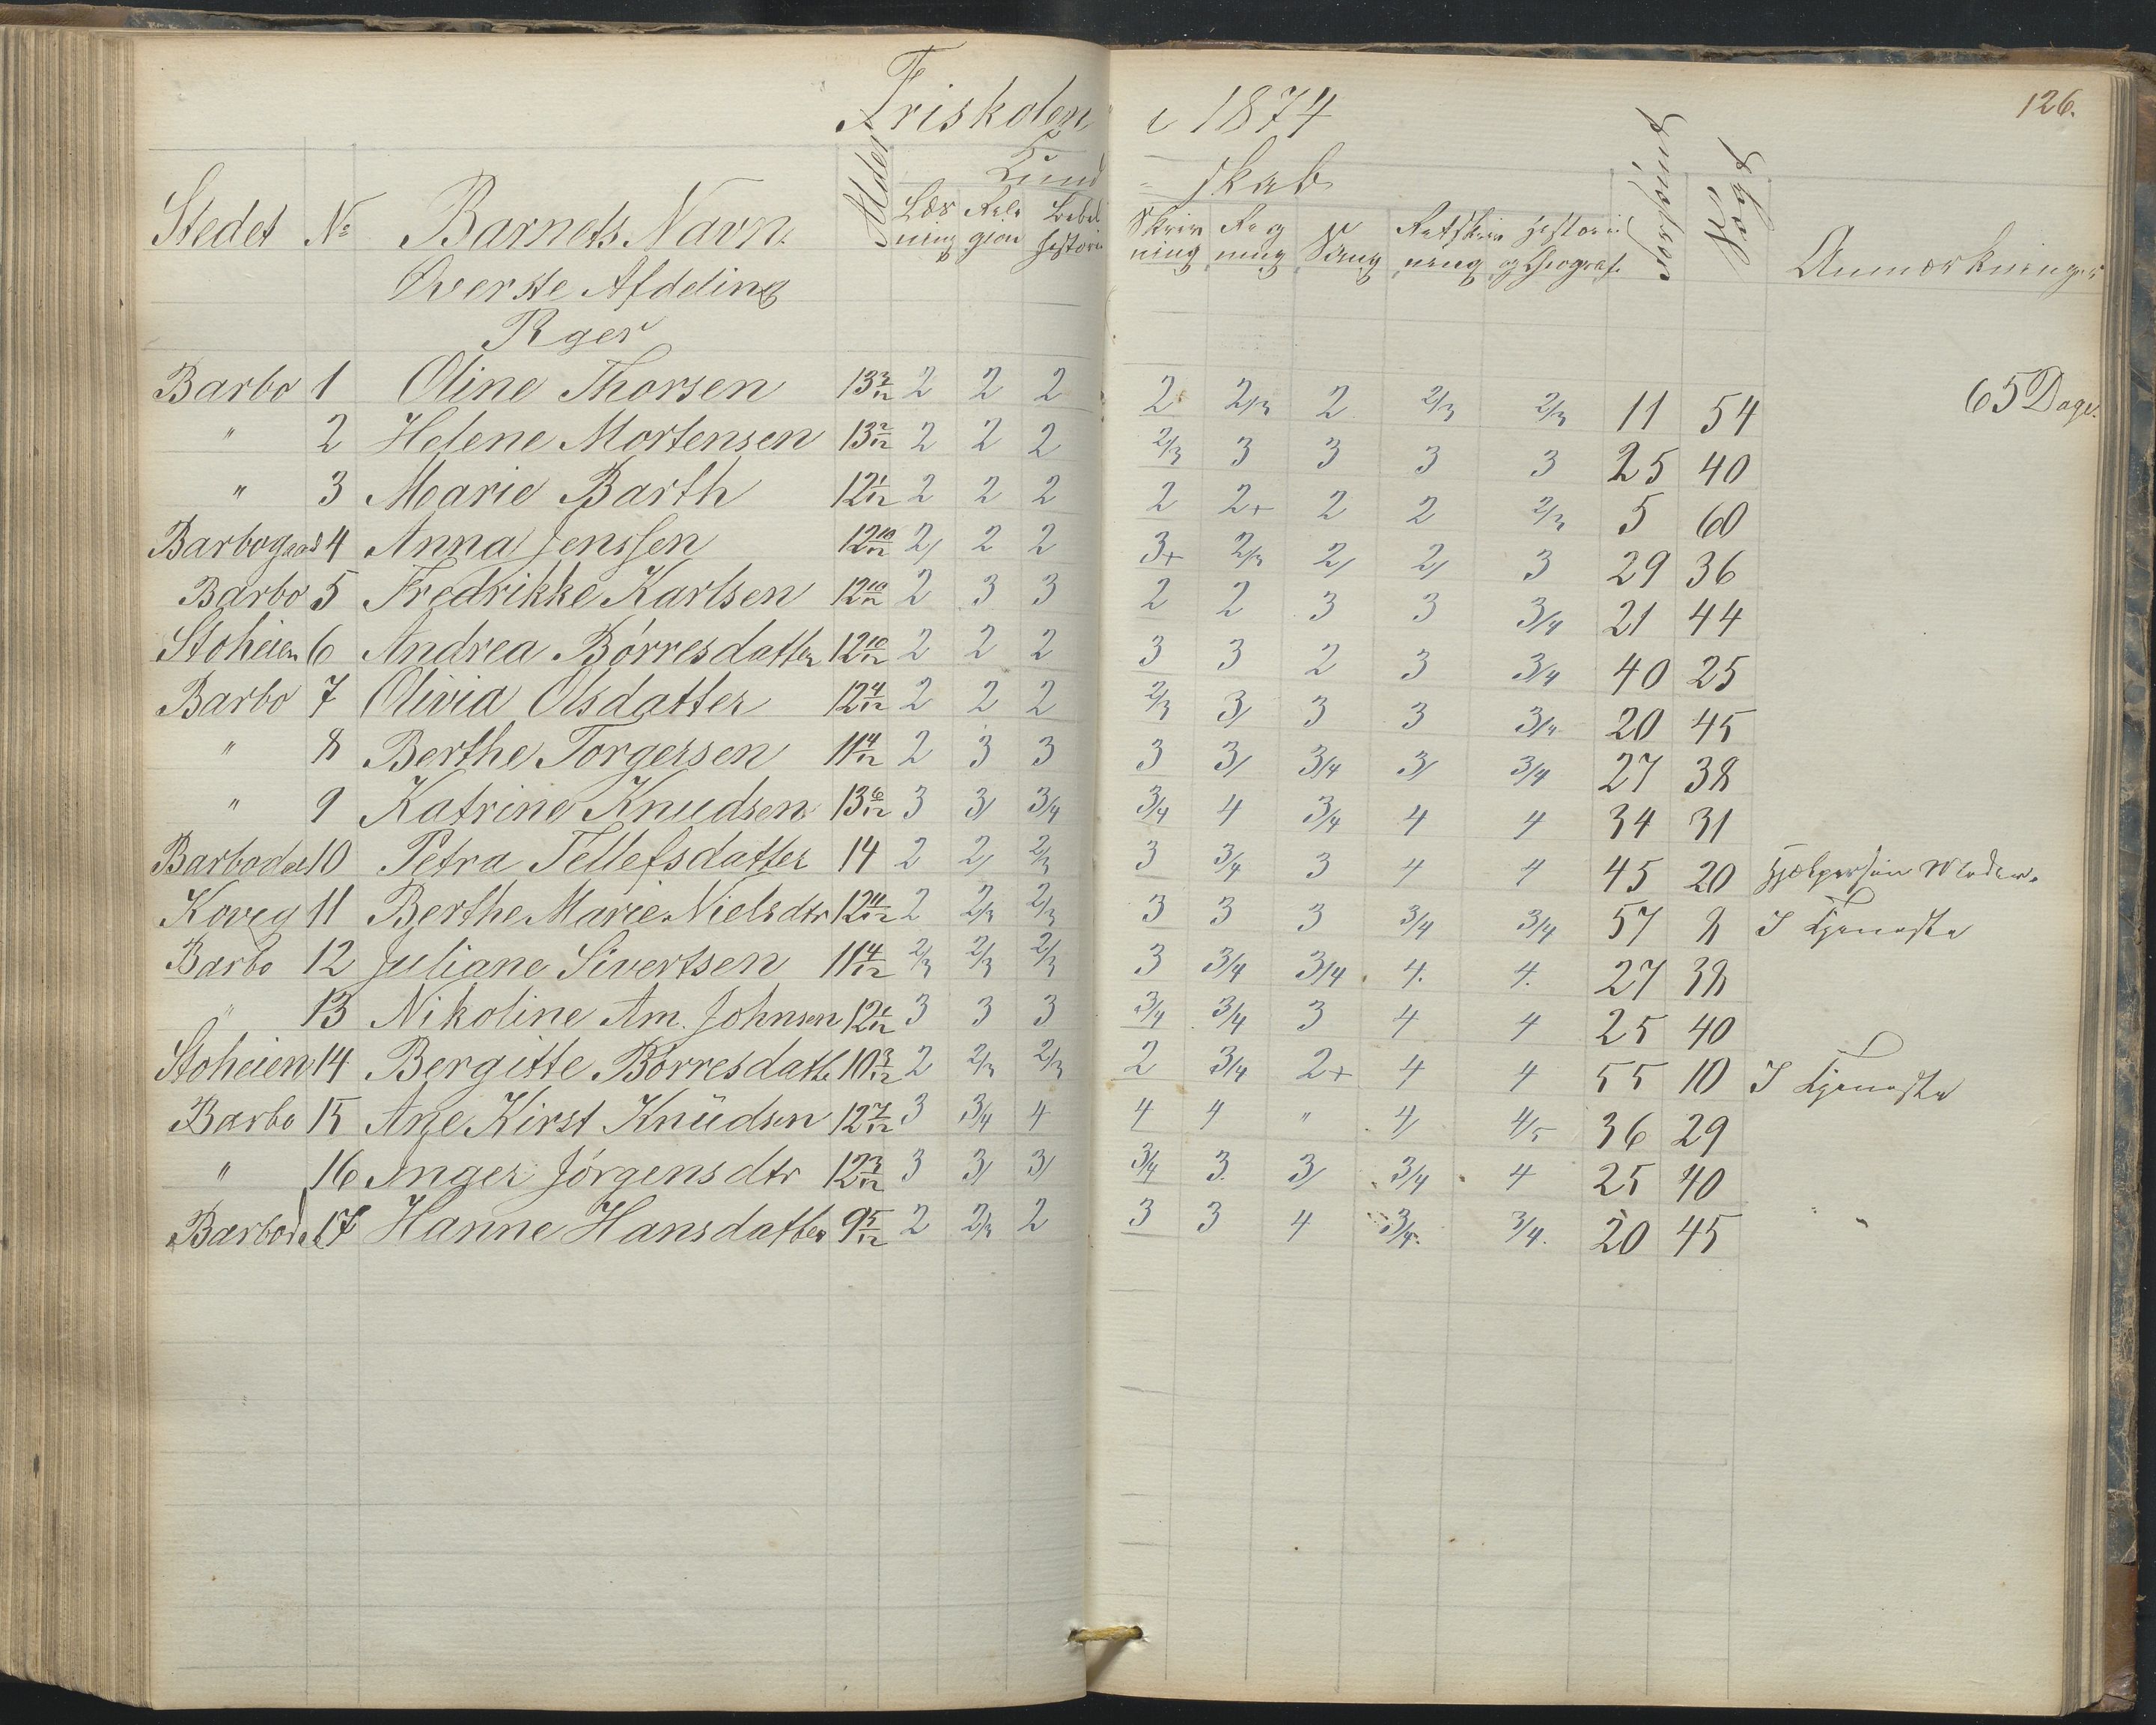 126.
Friskolen i 1874
Kund - skab
Stedet No Barnets Navn. Alder Læs Reli Bibel Skriv Reg Sang Retskriv Historie Forsømt Søgt Anmærkninger
ning gion historie ning ning ning og Geograf.
Øverste Afdeling
Pger
Barbo 1 Oline Thorsen 13 3/12 2 2 2 2 2/3 2 2/3 2/3 11 54 65 Dage.
" 2 Helene Mortensen 13 2/12 2 2 2 2/3 3 3 3 3 25 40
" 3 Marie Barth 12 1/12 2 2 2 2 2+ 2 2 2/3 5 60
Barbogaard 4 Anna Jenssen 12 10/12 2/ 2 2 3+ 2/3 2/ 2/ 3 29 36
Barbo 5 Fredrikke Karlsen 12 10/12 2 3 3 2 2 3 3 3/4 21 44
Stoheien 6 Andrea Börresdatter 12 10/12 2 2 2 3 3 2 3 3/4 40 25
Barbo 7 Olivia Olsdatter 12 4/12 2 2 2 2/3 3/ 3 3 3/4 20 45
" 8 Berthe Torgersen 11 4/12 2 3 3 3 3/ 3/4 3/ 3/4 27 38
" 9 Katrine Knudsen 13 6/12 3 3/ 3/4 3/4 4 3/4 4 4 34 31
Barbodal 10 Petra Tellefsdatter 14 2 2/ 2/3 3 3/4 3 4 4 45 20 Hjælper sin Moder.
Koveg 11 Berthe Marie Nielsdtr 12 11/12 2 2/3 2/3 3 3 3 3/4 3/4 57 8 I Tjeneste
Barbo 12 Juliane Sivertsen 11 4/12 2/3 2/3 2/3 3 3/4 3/4 4. 4. 27 38
" 13 Nikoline Am. Johnsen 12 /12 3 3 3 3/4 3/4 3 4 4 25 40
Stoheien 14 Bergitte Börresdatt. 10 3/12 2 2/3 2/3 2 3/4 2+ 4 4 55 10 I Tjeneste
Barbo 15 Ane Kirst Knüdsen 12 7/12 3 3/4 4 4 4 " 4/ 4/5 36 29
" 16 Inger Jörgensdtr 12 3/12 3 3/ 3/ 3/4 3 3/ 3/4 4 25 40
Barbodal 17 Hanne Hansdatter 9 5/12 2 2/3 2 3 3 4 3/4. 3/4. 20 45